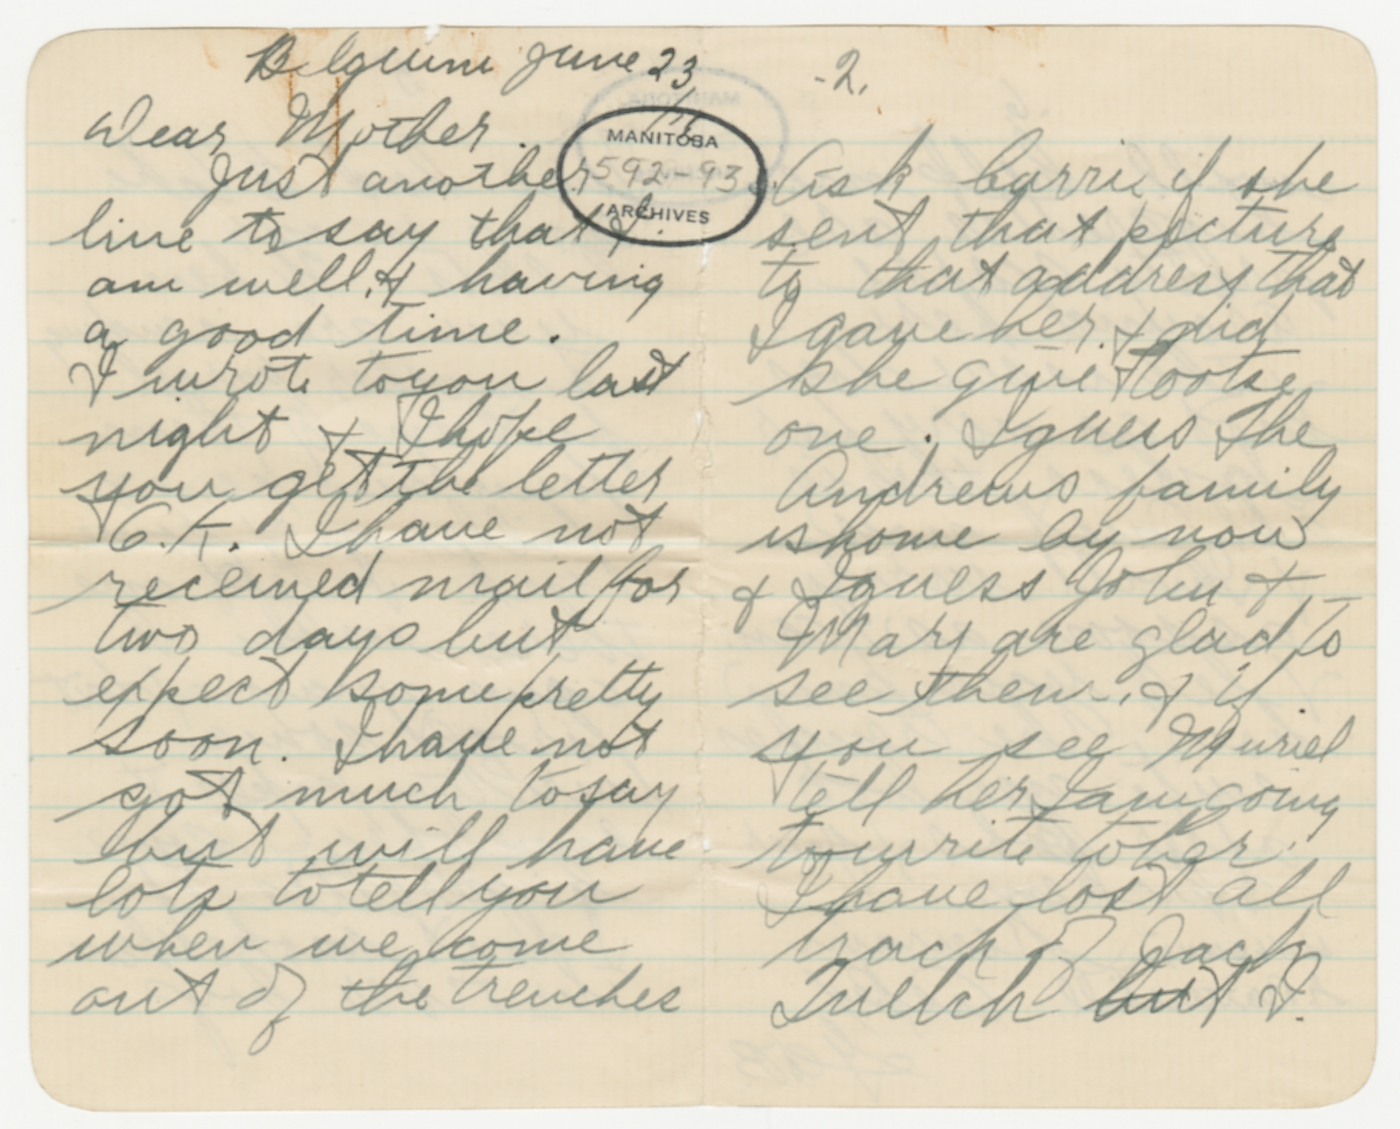 Belguim June 23
Dear Mother.
Just another
line to say that I
am well, & having
a good time.
I wrote to you last
night & I hope
you get the letter
O.K. I have not
received mail for
two days but
expect some pretty
soon. I have not
got much to say
but will have
lots to tell you
when we come
out of the trenches
MANITOBA
592-93
ARCHIVES
-2.
Ask Carrie if she
sent that picture
to that address that
I gave her. & did
she give Tootse
one. I guess the
Andrews family
is home by now
& I guess John &
Mary are glad to
see them. & if
you see Muriel
tell her I am going
to write to her.
I have lost all
track of Jack
Quelch but I.